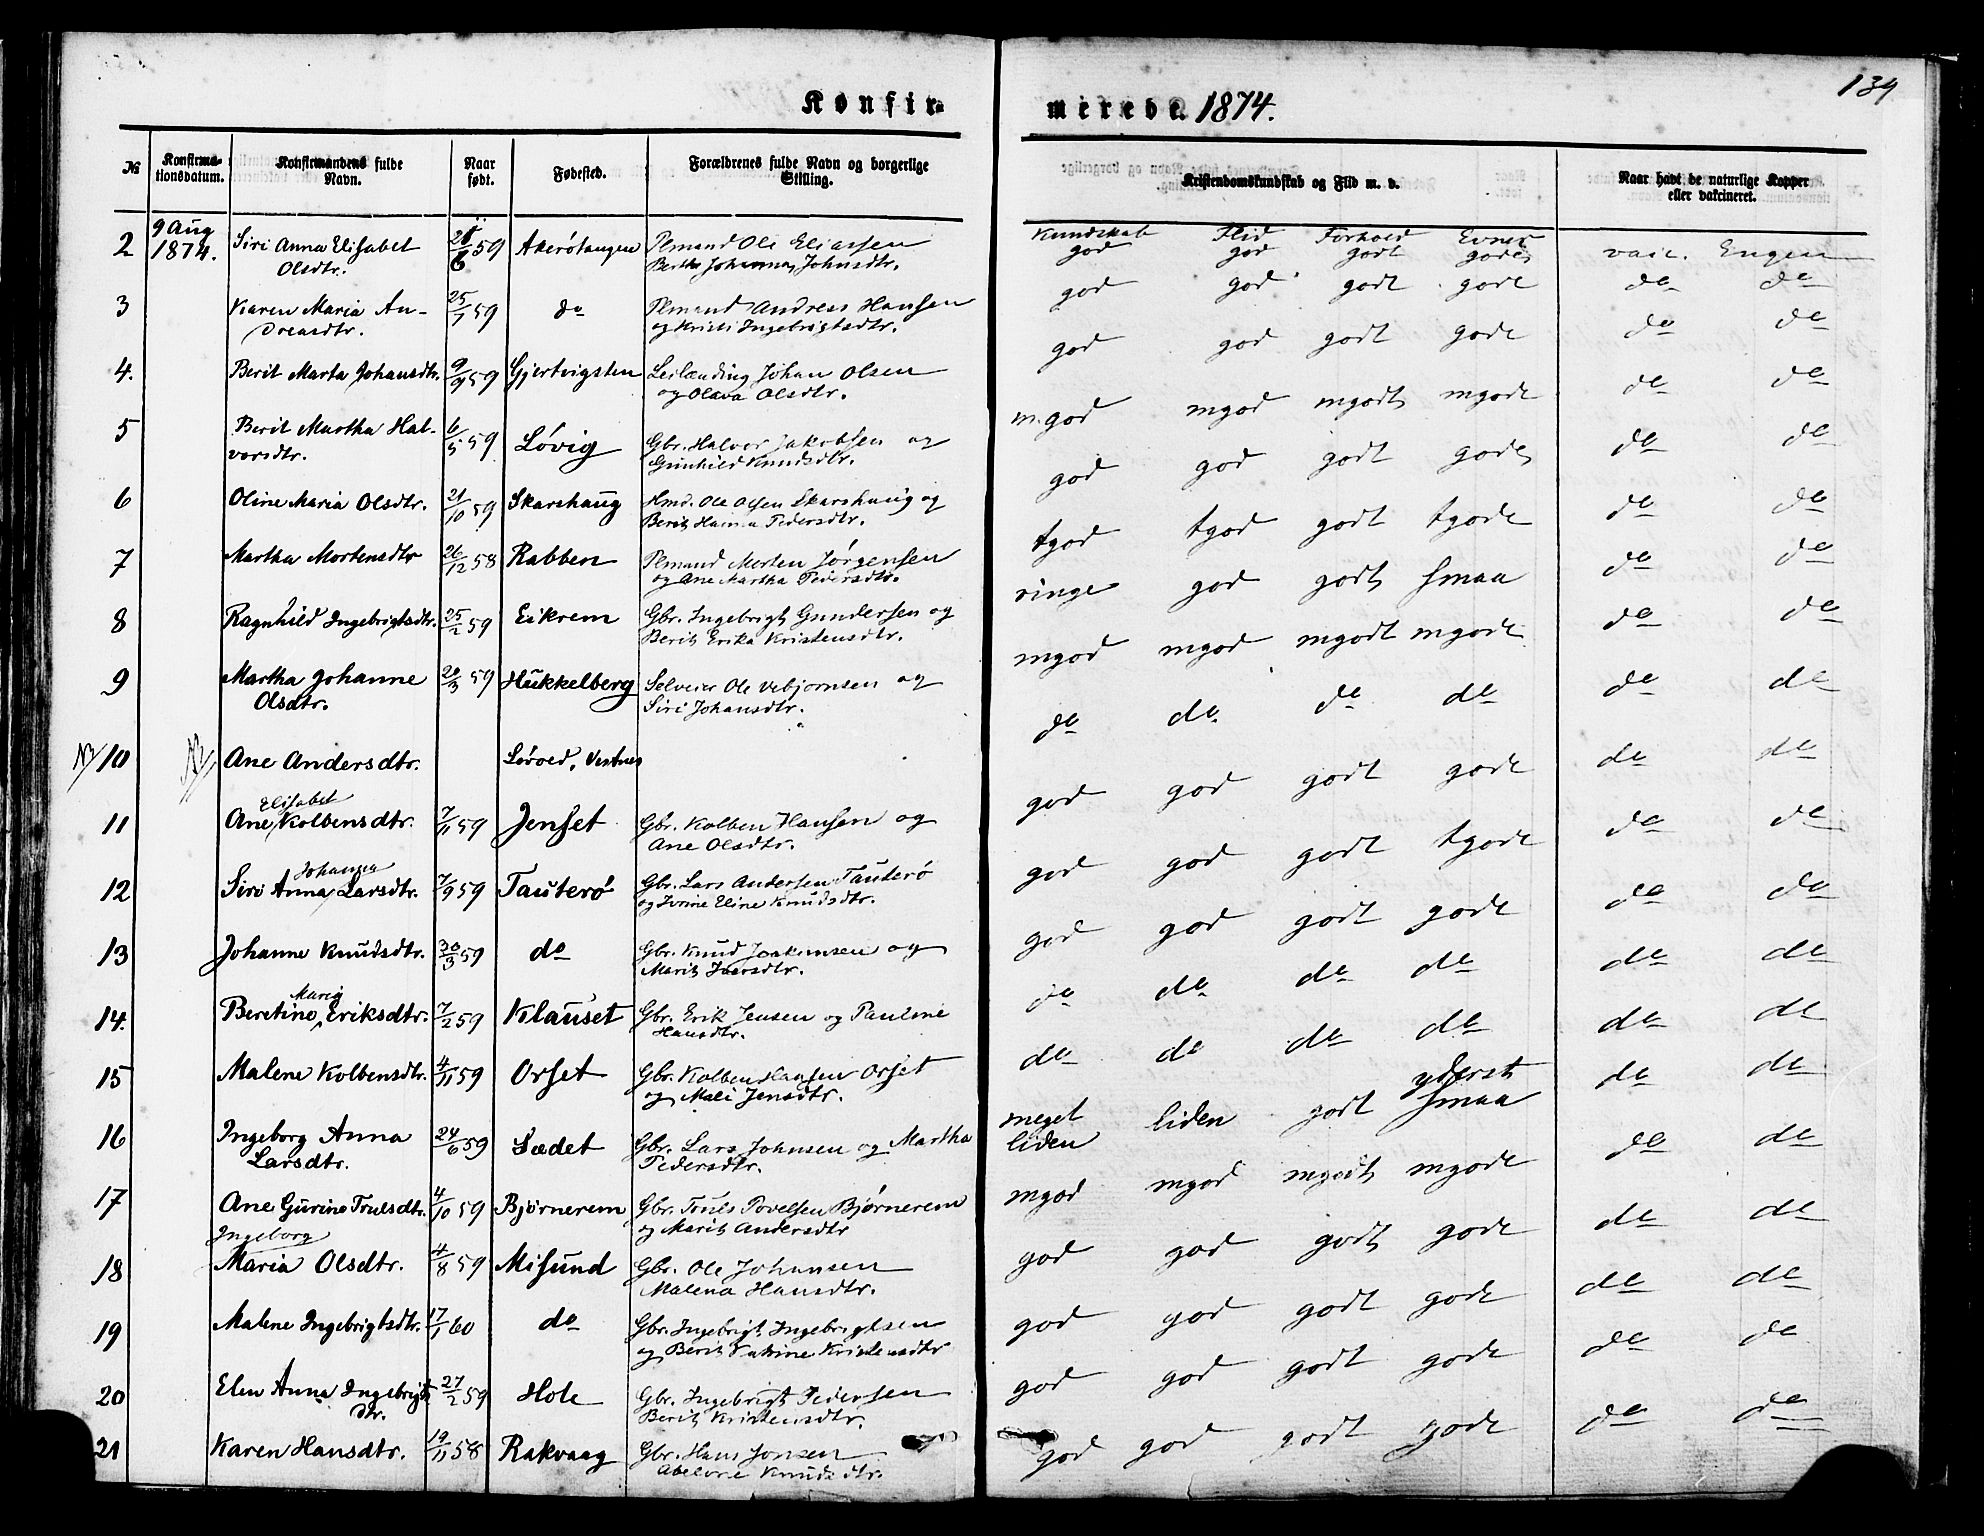 Konfir-
merede 1874.
139
№
Konfirma-
tionsdatum.
Konfirmandens fulde
Navn.
Naar
født.
Fødested.
Forældrenes fulde Navn og borgerlige
Stilling.
Kristendomskundskab og Flid m. v.
Naar havt de naturlige Kopper
eller vakcineret.
Kundskab Flid Forhold Evner
2 9 Aug 1874. Siri Anna Elisabet 59 Akerötangen Plmand Ole Eliassen god god godt gode vacc. Engen
Olsdtr. Johnsdtr.
god god godt gode do do
3 Karen Maria An- 25/1 59 do Plmand Andreas Hansen
dreasdtr. og Ingebrigtsdtr.
god god godt gode do do
4. Berit Marta Johansdtr. 9/9 59 Gjertvigsten Leilænding Johan Olsen
og Olava Olsdtr.
m.god mgod mgodt mgode do do
5 Berit Martha Hal- 6/5 59 Lövig Gbr. Halvor Jakobsen og
vorsdtr. Gunhild Knudsdtr.
god god godt gode do do
6 Oline Maria Olsdtr. 21/10 59 Skarshaug Hmd. Ole Olsen Skarshaug og
Berit Hanna Pedersdtr.
tgod tgod godt tgode do do
7 Martha Mortensdtr 26/12 58 Rabben Plmand Morten Jörgensen
og Ane Martha Pedersdtr.
ringe god godt smaa do do
8 Ragnhild Ingebrigtsdtr. 25/2 59 Eikrem Gbr. Ingebrigt Gundersen og
Berit Erika Kristensdtr.
mgod mgod mgodt mgode do do
9 Martha Johanne 59 Hukkelberg Selveier Ole Vebjornsen og
Olsdtr. Siri Johansdtr.
do do do do do do
NB 10 NB Ane Andersdtr. Vestnes
god god godt gode do do
Elisabet
11 Ane Kolbensdtr. 7/11 59 Jenset Gbr. Kolben Hansen og
Ane Olsdtr.
god god godt tgode do do
Johanna
12 Siri Anna Larsdtr. 7/9 59 Tauterö Gbr. Lars Andersen Tauterö
og Eline Knudsdtr.
god god godt gode do do
13 Johanne Knudsdtr. 30/3 59 do Gbr. Knud Joakimsen og
Marit Iversdtr.
do do do do do do
Marie
14. Beretine Eriksdtr. 7/2 59 Klauset Gbr. Erik Jensen og Pauline
Hansdtr.
do do do do do do
15 Malene Kolbensdtr. 4/11 59 Orset Gbr. Kolben Hansen Orset
og Mali Jensdtr.
yderst
meget liden godt smaa do do
liden
16 Ingeborg Anna 24/6 59 Sædet Gbr. Lars Johnsen og Martha
Larsdtr. Pedersdtr.
mgod mgod mgodt mgode do do
17 Ane Gurine Trulsdtr. 4/10 59 Björnerem Gbr. Truls Povelsen Björnerem
og Marit Andersdtr
god god godt gode do do
Ingeborg
18 Maria Olsdtr. 4/8 59 Misund Gbr. Ole Johansen
Malena Hansdtr.
god god godt gode do do
19 Malene Ingebrigtsdtr. 17/1 60 do Gbr. Ingebrigt Ingebrigtsen
og Berit Katrine Kristensdtr
god god godt gode do do
20 Elen Anna Ingebrigts 27/2 59 Hole Gbr. Ingebrigt Pedersen
dtr. Berit Kristensdtr.
god god godt gode do do
21 Karen Hansdtr. 19/11 58 Rakvaag Gbr. Hans Jonsen
Knudsdtr.